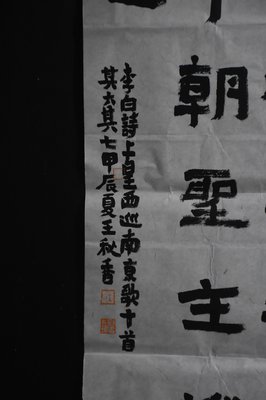 朝聖主
李白詩上皇西巡南京歌十首
其六其七甲辰夏王秋香